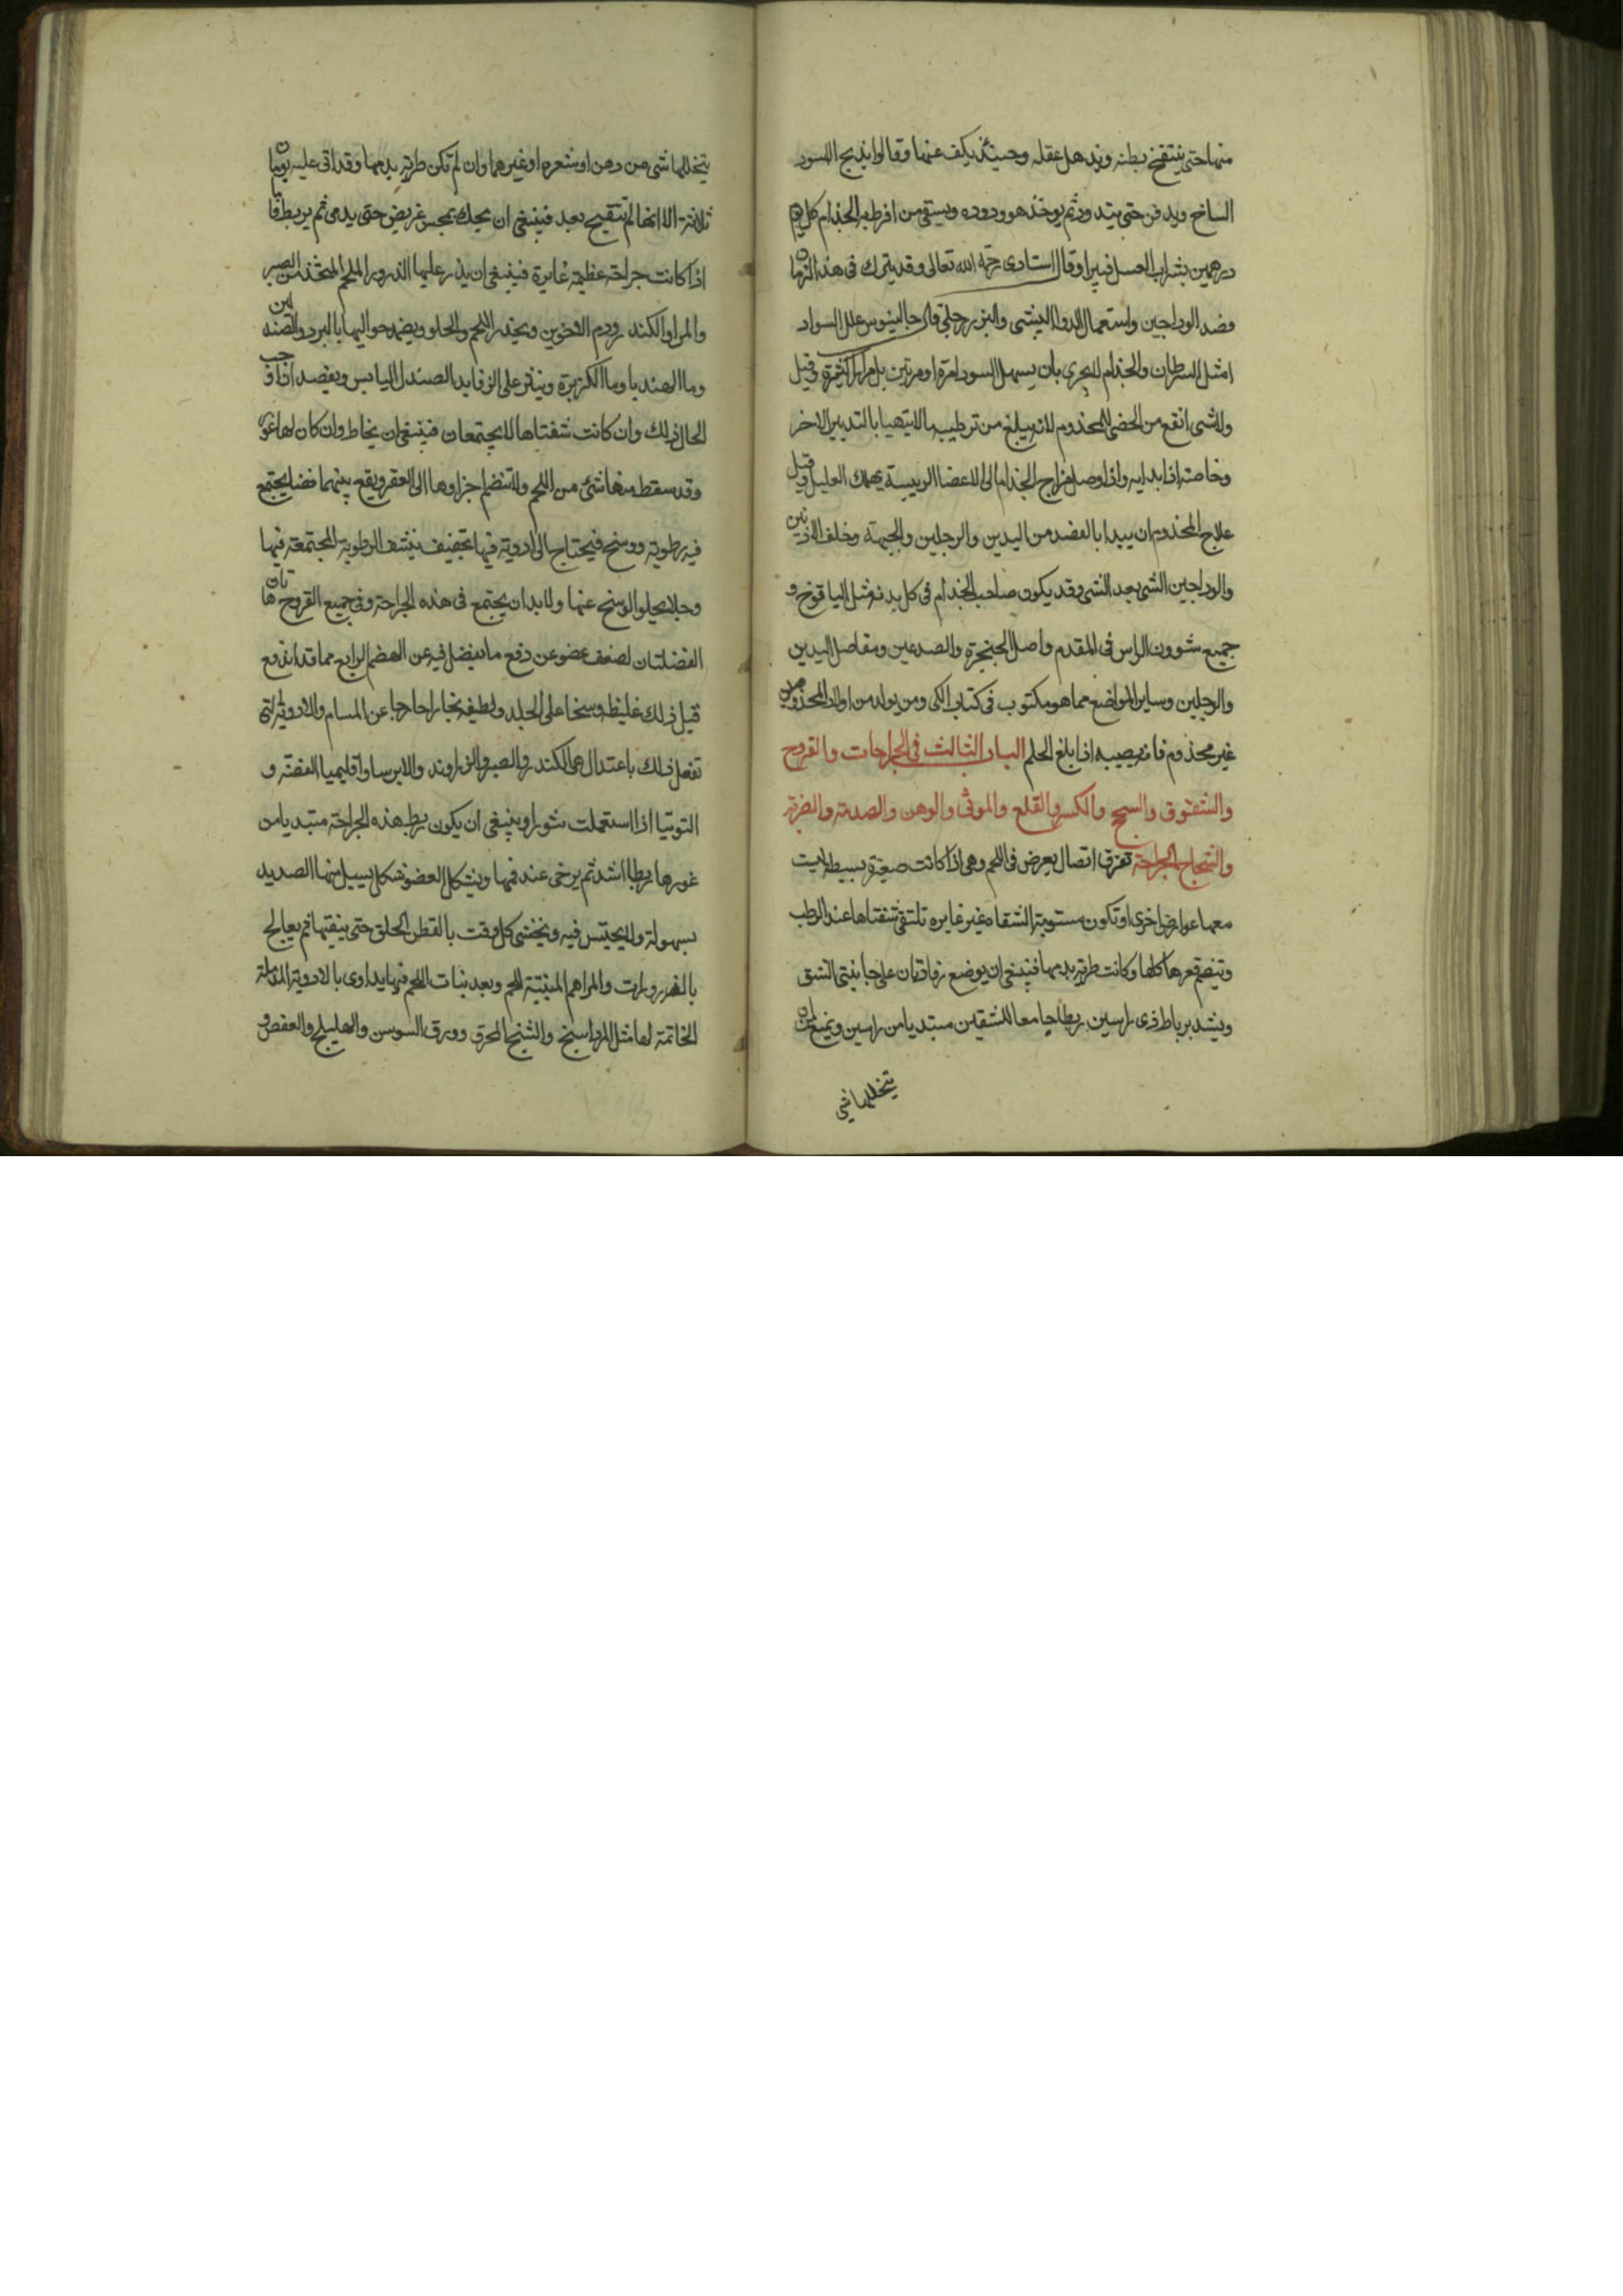 منها حتى ينتفخ بطنه ويذهل عقله وحينئذ يكف عنها وقالوا يذبح الاسود
السالخ ويدفن حتى يتدود ثم يوخذ هو ودوده ويسقى من افرط به الجذام كل يوم
درهمين بشراب العسل فيبرا وقال استادى رحمه الله تعالى وقد يترك فى هذا الزمان
فصد الوداجين واستعمال الدوا البيشى والبزرجلى قال جالينوس علل السواد
امثل السرطان والجذام للبحرى بان يسهل السودا مرة او مرتين بل مرارا كثيرة وقيل
ولا شى انفع من الخصى للمجذوم لانه يبلغ من ترطيبه ما لا يتهيا بالتدبير الاخر
وخاصة اذا بدا به واذا وصل مزاج الجذام الى الاعضا الرييسة يهلك العليل وقيل
علاج المجذوم ان يبدا بالفصد من اليدين والرجلين والجبهة وخلف الاذنين
والوداجين الشى بعد الشى وقد يكون صاحب الجذام فى كل بدنه مثل اليافوخ و
جميع شوون الراس فى المقدم واصل الحنجرة والصدغين ومفاصل اليدين
والرجلين وساير المواضع مما هو مكتوب فى كتاب الكى ومن يولد من اولاد المجذومين
غير مجذوم فانه يصيبه اذا بلغ الحلم الباب الثالث فى الجراحات والقروح
والشقوق والسحج والكسر والقلع والموثى والوهن والصدمة والضربة
والشجاج الجراحة تفرق اتصال يعرض فى اللحم وهى اذا كانت صغيرة بسيطة ليست
معها عوارض اخرى او تكون مستوية الشفاه غير غايره تلتقى شفتاها عند الربط
وتنضم قعرها كلها وكانت طرية بدمها فينبغى ان يوضع رفادتان على جانبتى الشق
ويشد برباط ذى راسين ربطا جامعا للشقين مبتديا من راسين ويمنع من ان
يتخللها شى
يتخللها شى من دهن او شعره او غيرهما وان لم تكن طرية بدمها وقد اتى عليه يومان
ثلاثة الا انها لم تتقيح بعد فينبغى ان يحك بمجس عريض حتى يدمى ثم يربط فاما
اذا كانت جراحة عظيمة غايرة فينبغى ان يذر عليها الذرور الملحم المتخذ من الصبر
والمر او الكندر ودم الاخوين ويحذر اللحم والحلو ويضمد حواليها بالبرد والصندلين
وما الهندبا وما الكزبرة وينثر على الرفايد الصندل اليابس ويفصد اذا وجب
الحال ذلك وان كانت شفتاها لا يجتمعان فينبغى ان يخاط وان كان لها غور
وقد سقط منها شى من اللحم ولا تنضم اجزاوها الى القعر ويقع بينهما فضا يجتمع
فيه رطوبة ووسخ فيحتاج الى ادوية فيها تجفيف ينشف الرطوبة المجتمعة فيها
وجلا يجلو الوسخ عنها ولا بد ان يجتمع فى هذه الجراحة وفى جميع القروح هاتان
الفضلتان لضعف عضو عن دفع ما يفضل فيه عن الهضم الرابع مما قد اندفع
قبل ذلك غليظه وسخا على الجلد ولطيفه بخارا خارجا عن المسام والادوية التى
تفعل ذلك باعتدال هى الكندر والصبر والزراوند والايرسا واقليميا الفضة و
التوتيا اذا استعملت نثورا وينبغى ان يكون ربط هذه الجراحة مبتديا من
غورها ربطا اشد ثم يرخى عند فمها ويشكل العضو شكل يسيل منها الصديد
بسهولة ولا يحتبس فيه ويحشى كل وقت بالقطن الخلق حتى ينقيها ثم يعالج
بالذرورات والمراهم المنبتة للحم وبعد نبات اللحم فيها يداوى بالادوية المدملة
الخاتمة لها مثل المرداسنج والشنج المحرق وورق السوسن والهليلج والعفص و